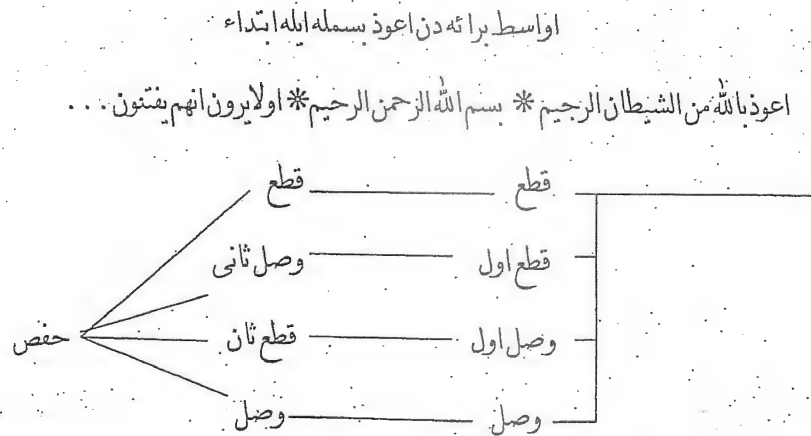 اواسط برائه دن اعوذ بسمله ايله ابتداء
اعوذ بالله من الشيطان الرجيم * بسم الله الرحمن الرحيم * اولا يرون انهم يفتنون ...
قطع قطع
قطع اول وصل ثانى
وصل اول قطع ثان
حفص
وصل وصل